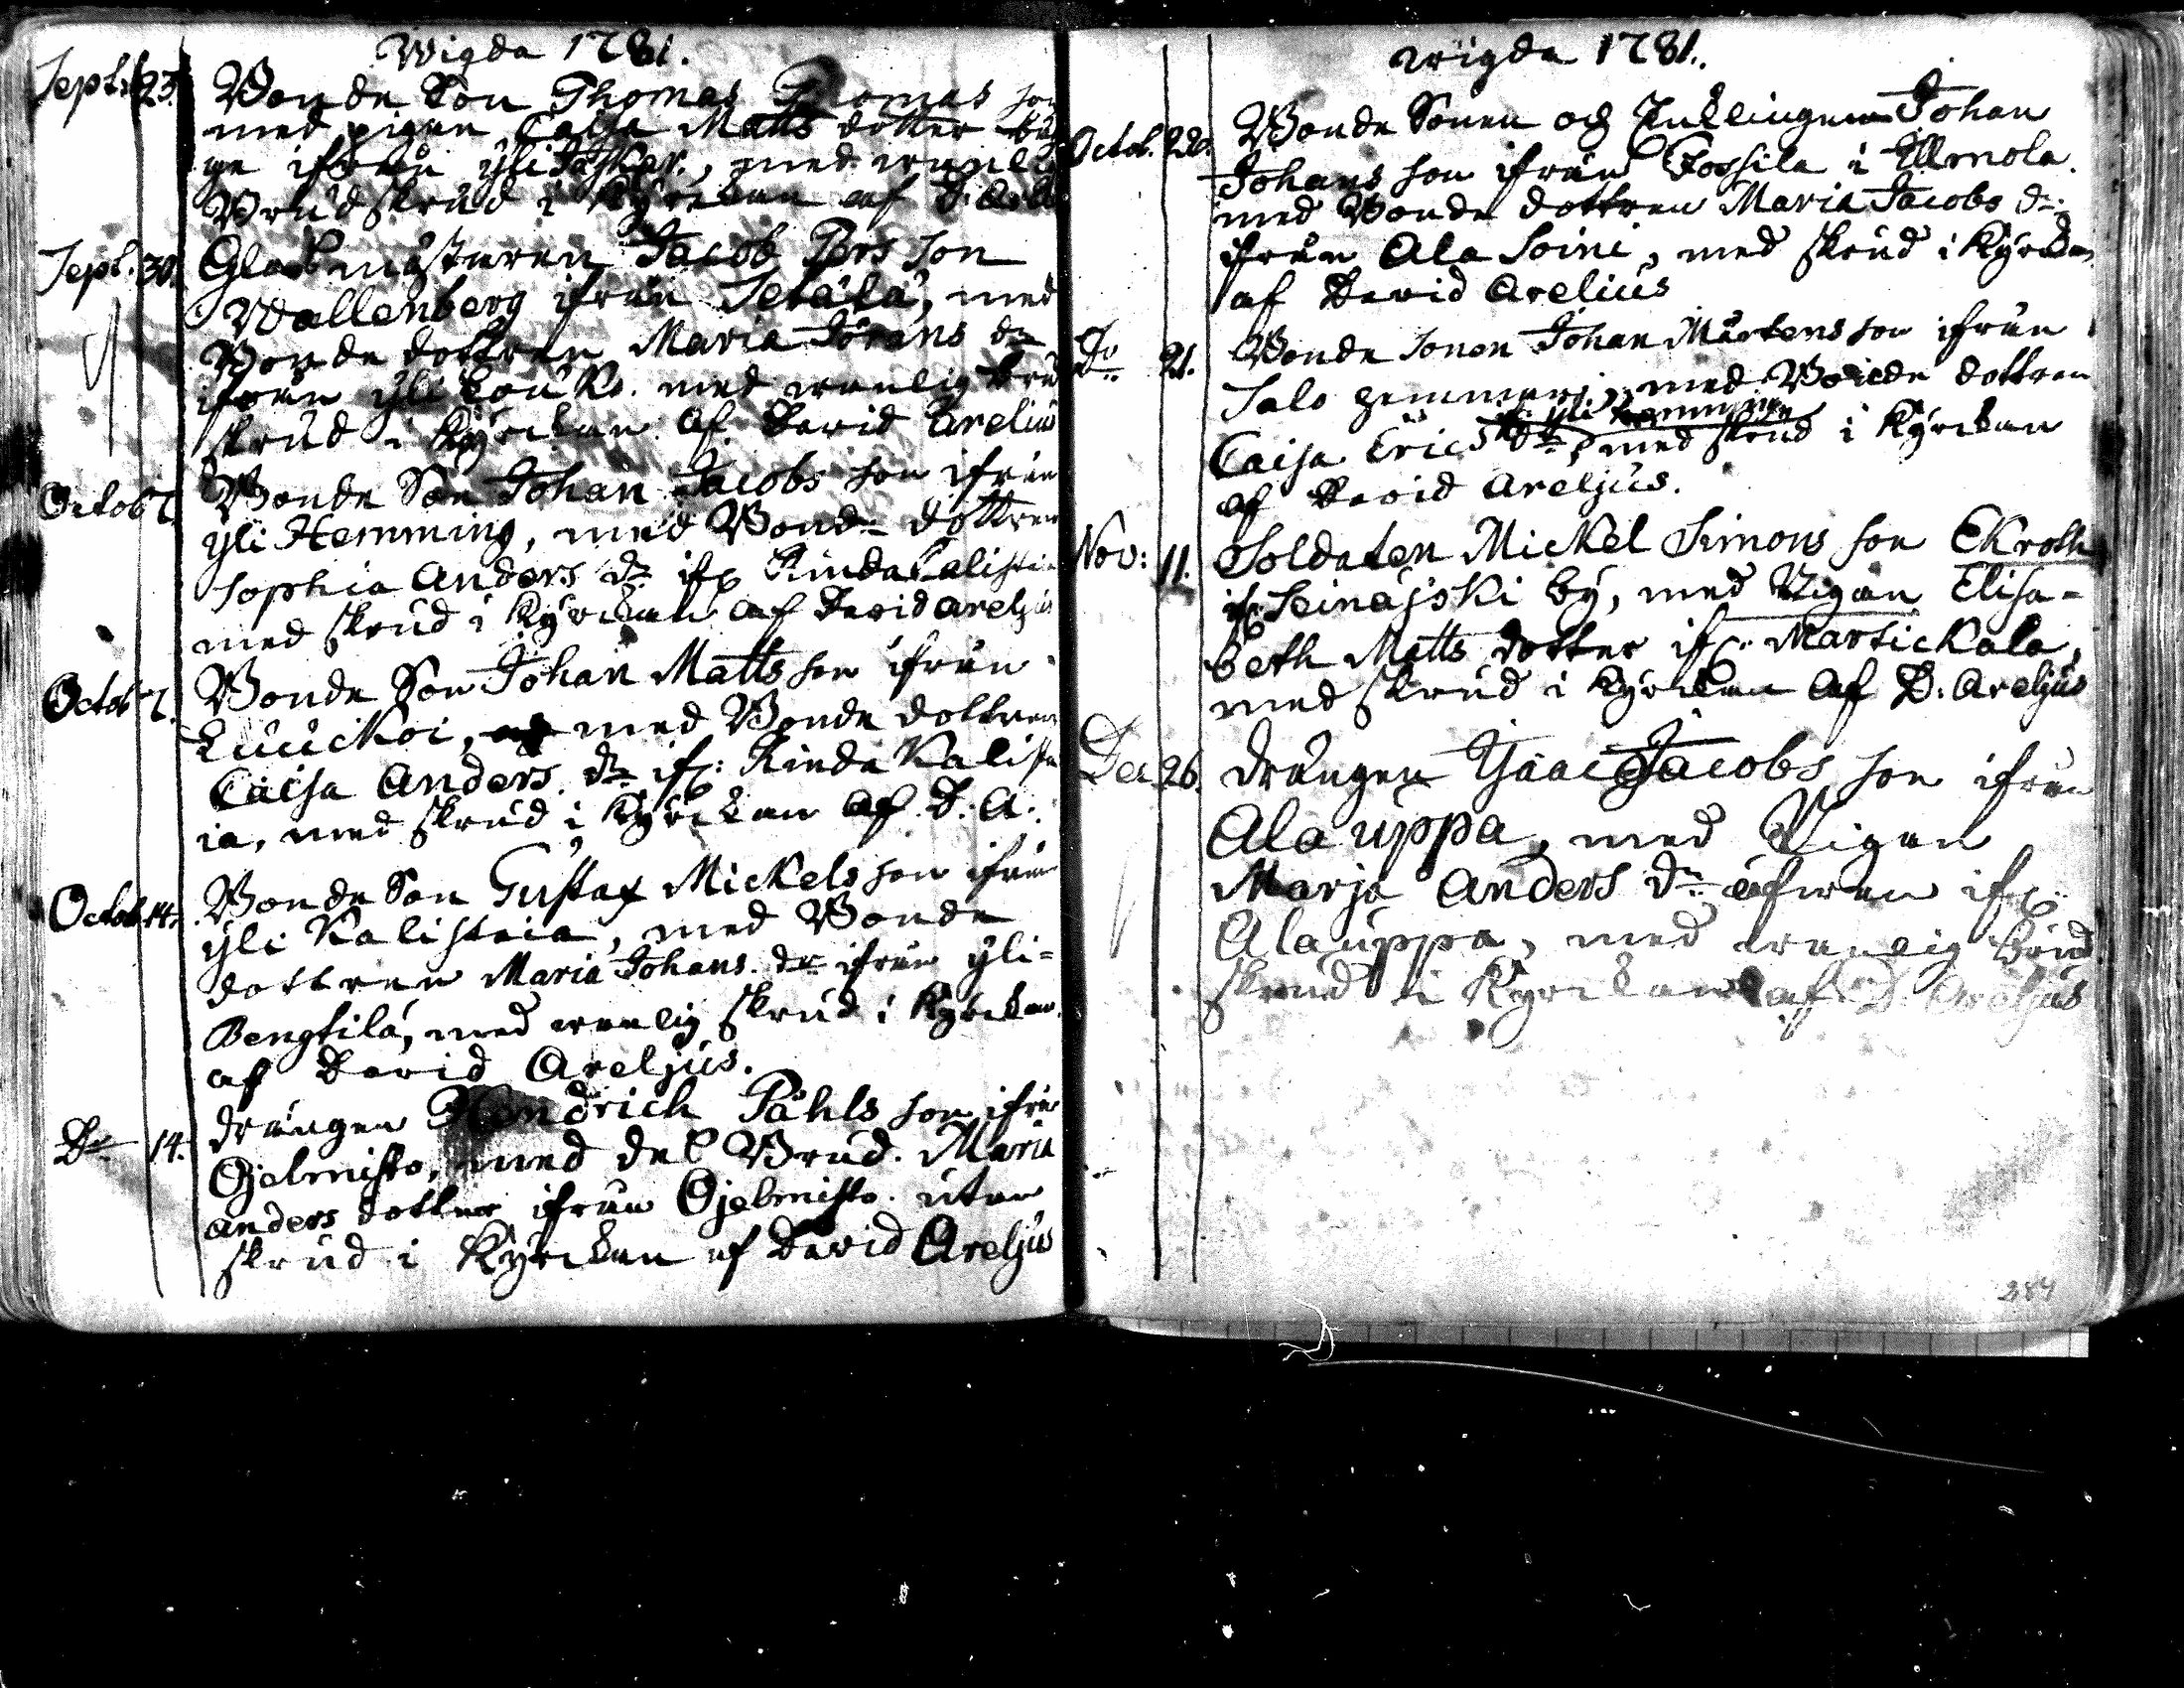 Wigda 1781.
Sept: 23. Bonde Son Thomas Thomas son
med pigan Caisa Matts dotter bäg
ge ifrån yli Jaskar., med wanlig
Brudskrud i Kyrckan af D. Are
Sept. 30. Glasmästaren Jacob Pers son
Wallenberg ifrån Setälä, med
Bonde dottren Maria Jörans dr
ifrån yli Louko. med wanlig Bru
skrud i Kyrckan af David Arelius
Octob 7. Bonde Son Johan Jacobs son ifrån
yli Hemming, med Bonde dottren
Sophia Anders dr ifr Rinda Kalistia
med skrud i Kyrckan af David Areljus
Octob 7. Bonde Son Johan Matts son ifrån
Luuckoi, med Bonde dottren
Caisa Anders dr ifr: Rinda Kalist
ia, med skrud i Kyrckan af D. A.
Octob. 14. Bonde Son Gustaf Mickels son ifrån
yli Kalistaia, med Bonde
dottren Maria Johans dr ifrån yli=
Bengtilä, med wanlig skrud i Kyrckan
af David Areljus.
Do 14. drängen Hendrich Påhls son ifrån
Ojelmisto, med del Brud. Maria
anders dotter ifrån Ojelmisto utan
skrud i Kyrckan af David Areljus
wigda 1781.
Octob. Bonde Sonen och Enklingen Johan
Johans son ifrån Fossila i Illmola.
med Bonde dottren Maria Jacobs dr.
ifrån Ala Soini, med skrud i Kyrckan
af David Arelius
Do 21. Bonde Sonen Johan Mårtens son ifrån
Salo Hemming, med Bonde dottren
if. yli Hemming
Caisa Erics dr, med skrud i Kyrckan
af David Areljus.
Nov: 11. Soldaten Mickel Simons son Ekroth
if. Seinäjoki by, med Pigan Elisa=
beth Matts dotter ifr. Martickala,
med skrud i Kyrckan af D. Areljus
Dec 26. drängen Isaac Jacobs son ifrån
Ala uppa, med Pigan
Marja Anders dr äfwen ifr.
Alauppa, med wanlig Brud
skrud i Kyrckan af D. Areljus
384